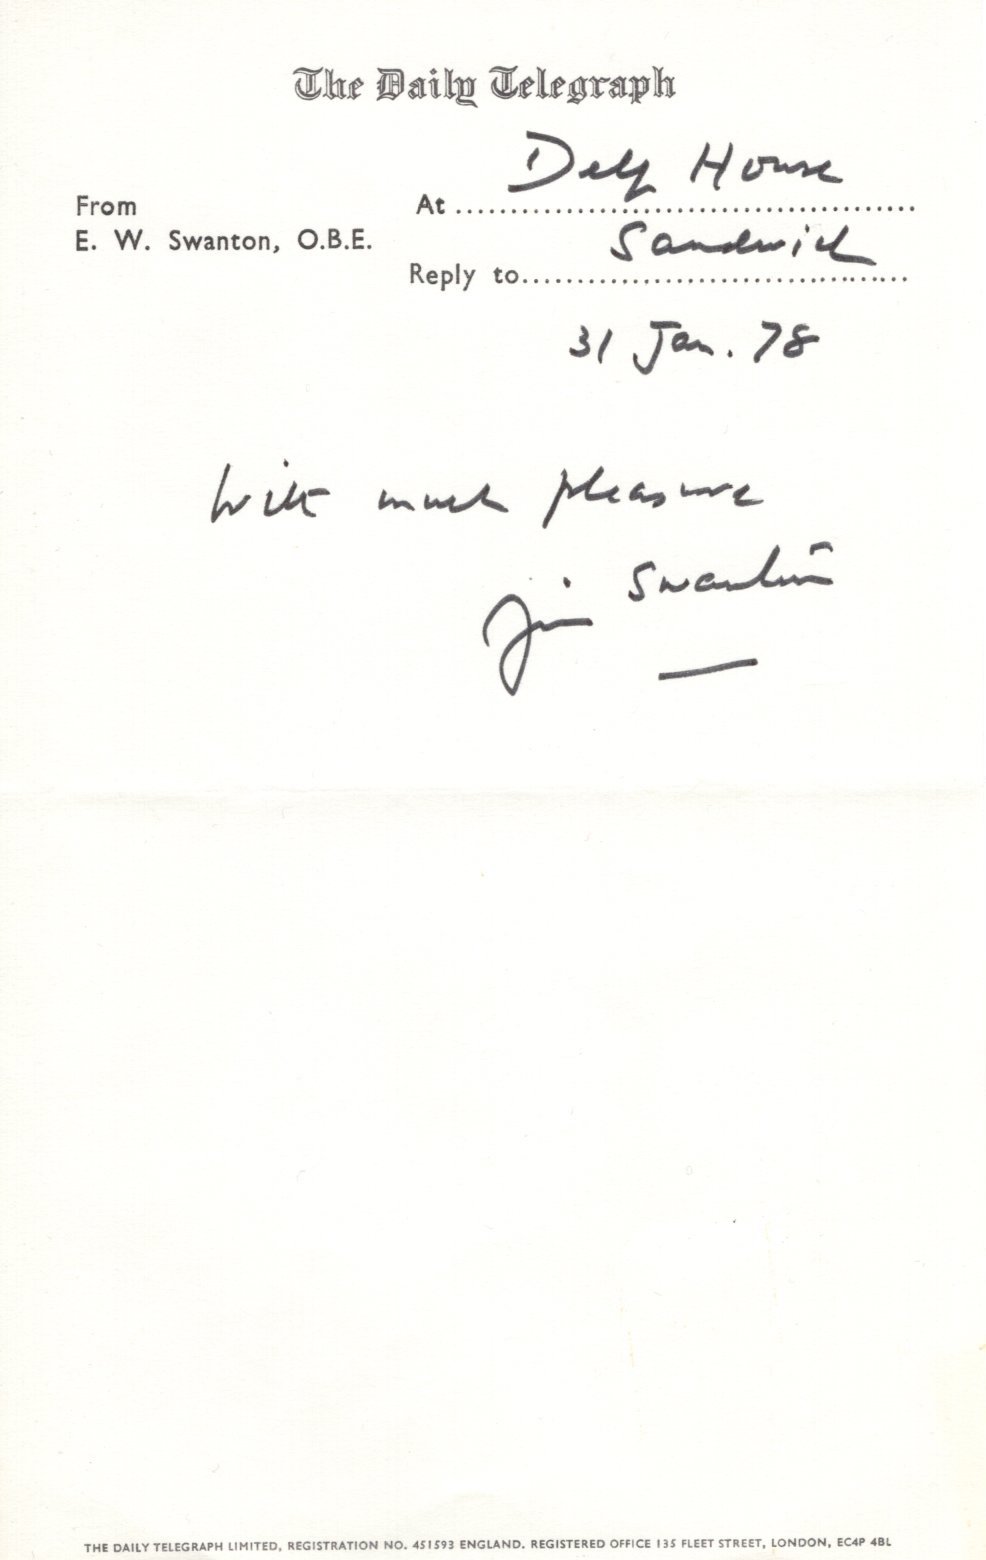 The Daily Telegraph
From
E. W. Swanton, O.B.E.
At Delf House
Reply to Sandwich
31 Jan. 78
With much pleasure
Jim Swanton
THE DAILY TELEGRAPH LIMITED, REGISTRATION NO. 451593 ENGLAND. REGISTERED OFFICE 135 FLEET STREET, LONDON, EC4P 4BL